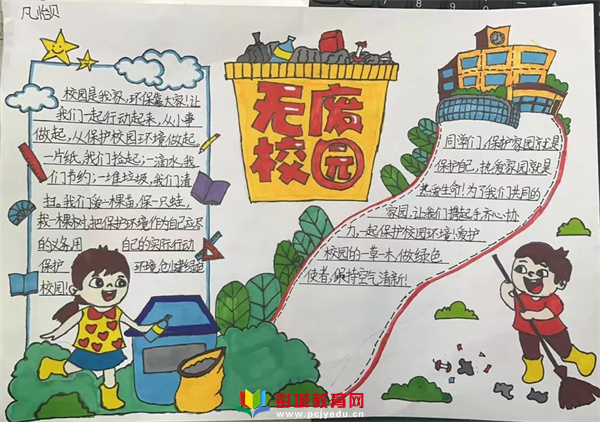 凡怡贝
无废
校园
校园是我家,环保靠大家!让
我们一起行动起来,从小事
做起,从保护校园环境做起,
一片纸,我们拾起;一滴水,我
们节约;一堆垃圾,我们清
扫。我们每一棵苗,保一只蛙,
栽一棵树,把保护环境作为自己应尽
的义务,用 自己的实际行动
保护 环境,创建绿色
校园!
同学们,保护家园就是
保护自己,热爱家园就是
热爱生命!为了我们共同的
家园,让我们携起手,齐心协
力,一起保护校园环境!爱护
校园的一草一木,做绿色
使者,保持空气清新!
彭城教育网
www.pcjyedu.cn